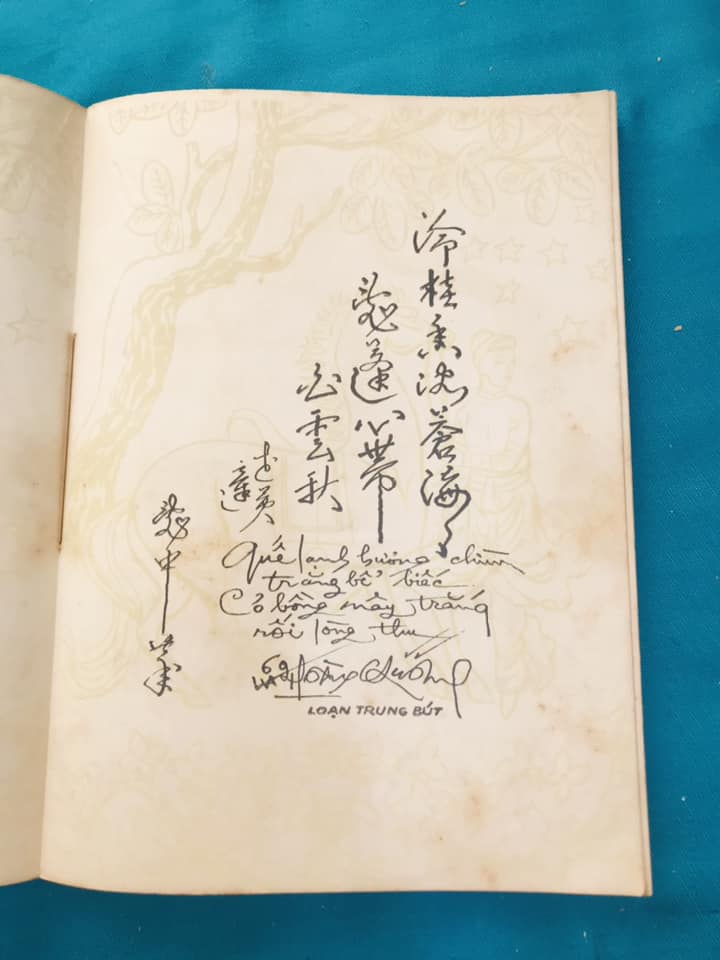 冷桂香沈蒼海月
亂蓬心帶
白雲秋
亂中筆
Quế lạnh hương chìm
trăng bể biếc
Cỏ bồng mây trắng
rối lòng thu
69 Hoàng Chương
LOẠN TRUNG BÚT